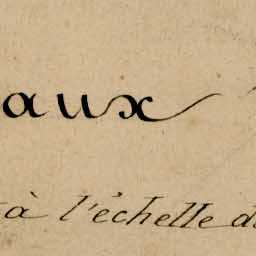 aux
à l'échelle d